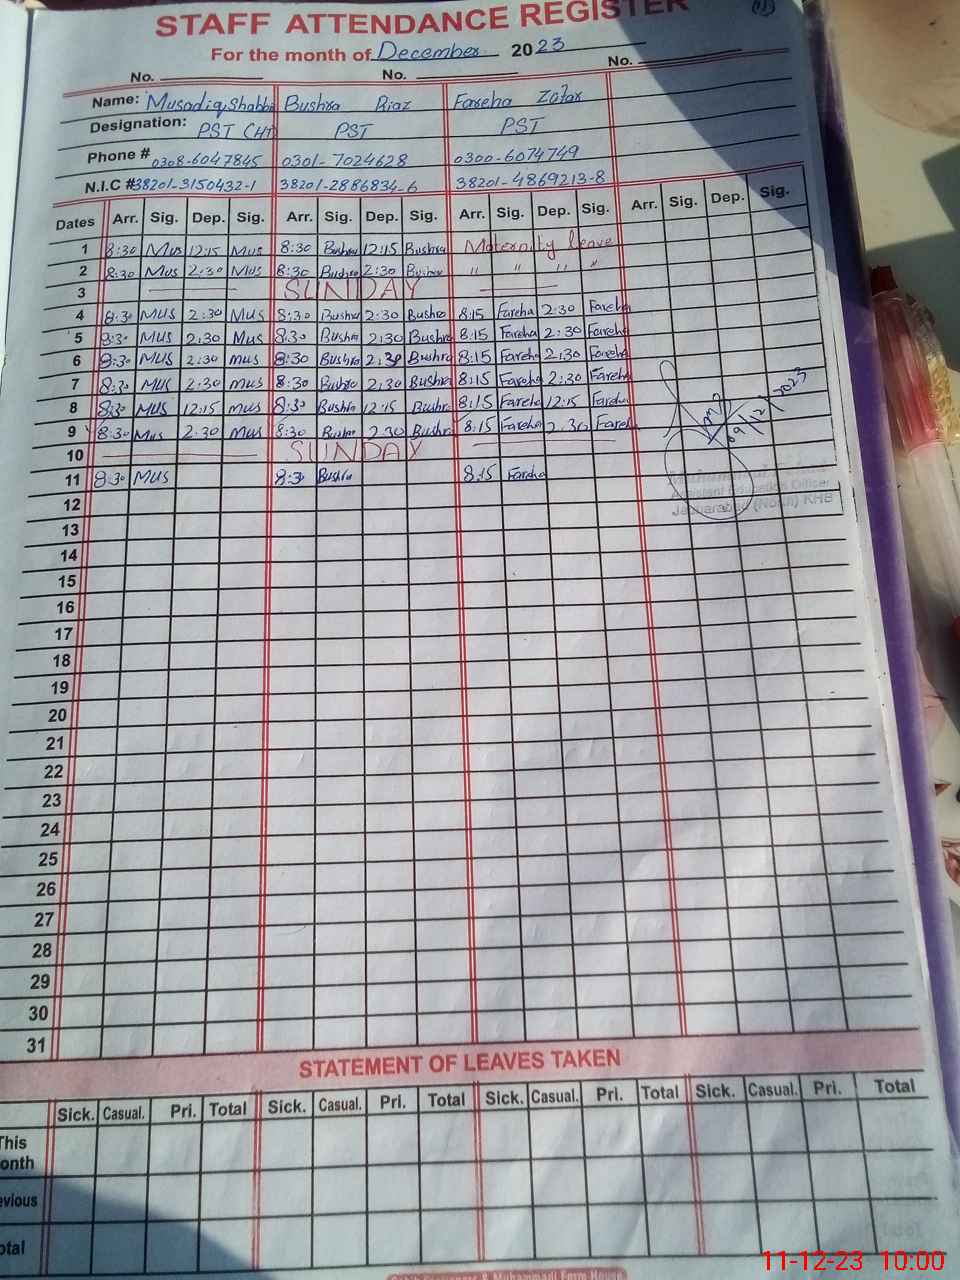 STAFF ATTENDANCE REGISTER
For the month of December 2023
No. No. No.
Name: Musadiq Shabbi Bushra Riaz Fareha Zafar
Designation: PST CHT PST PST
Phone # 0308-6047845 0301-7024628 0300-6074749
N.I.C # 38201-3150432-1 38201-2886834-6 38201-4869213-8
Dates Arr. Sig. Dep. Sig. Arr. Sig. Dep. Sig. Arr. Sig. Dep. Sig. Arr. Sig. Dep. Sig.
1 8:30 Mus 12:15 Mus 8:30 Bushra 12:15 Bushra Maternity leave
2 8:30 Mus 2:30 Mus 8:30 Bushra 2:30 Bushra " " " "
3 SUNDAY
4 8:30 Mus 2:30 Mus 8:30 Bushra 2:30 Bushra 8:15 Fareha 2:30 Fareha
5 8:30 Mus 2:30 Mus 8:30 Bushra 2:30 Bushra 8:15 Fareha 2:30 Fareha
6 8:30 Mus 2:30 mus 8:30 Bushra 2:30 Bushra 8:15 Fareha 2:30 Fareha
7 8:30 Mus 2:30 mus 8:30 Bushra 2:30 Bushra 8:15 Fareha 2:30 Fareha
8 8:30 Mus 12:15 mus 8:30 Bushra 12:15 Bushra 8:15 Fareha 12:15 Fareha
9 8:30 Mus 2:30 mus 8:30 Bushra 2:30 Bushra 8:15 Fareha 2:30 Fareha
09/12/2023
10 SUNDAY
11 8:30 Mus 8:30 Bushra 8:15 Fareha
Assistant Education Officer
Jauharabad (North) KHB
12
13
14
15
16
17
18
19
20
21
22
23
24
25
26
27
28
29
30
31
STATEMENT OF LEAVES TAKEN
Sick. Casual. Pri. Total Sick. Casual. Pri. Total Sick. Casual. Pri. Total Sick. Casual. Pri. Total
This
onth
evious
otal
11-12-23 10:00